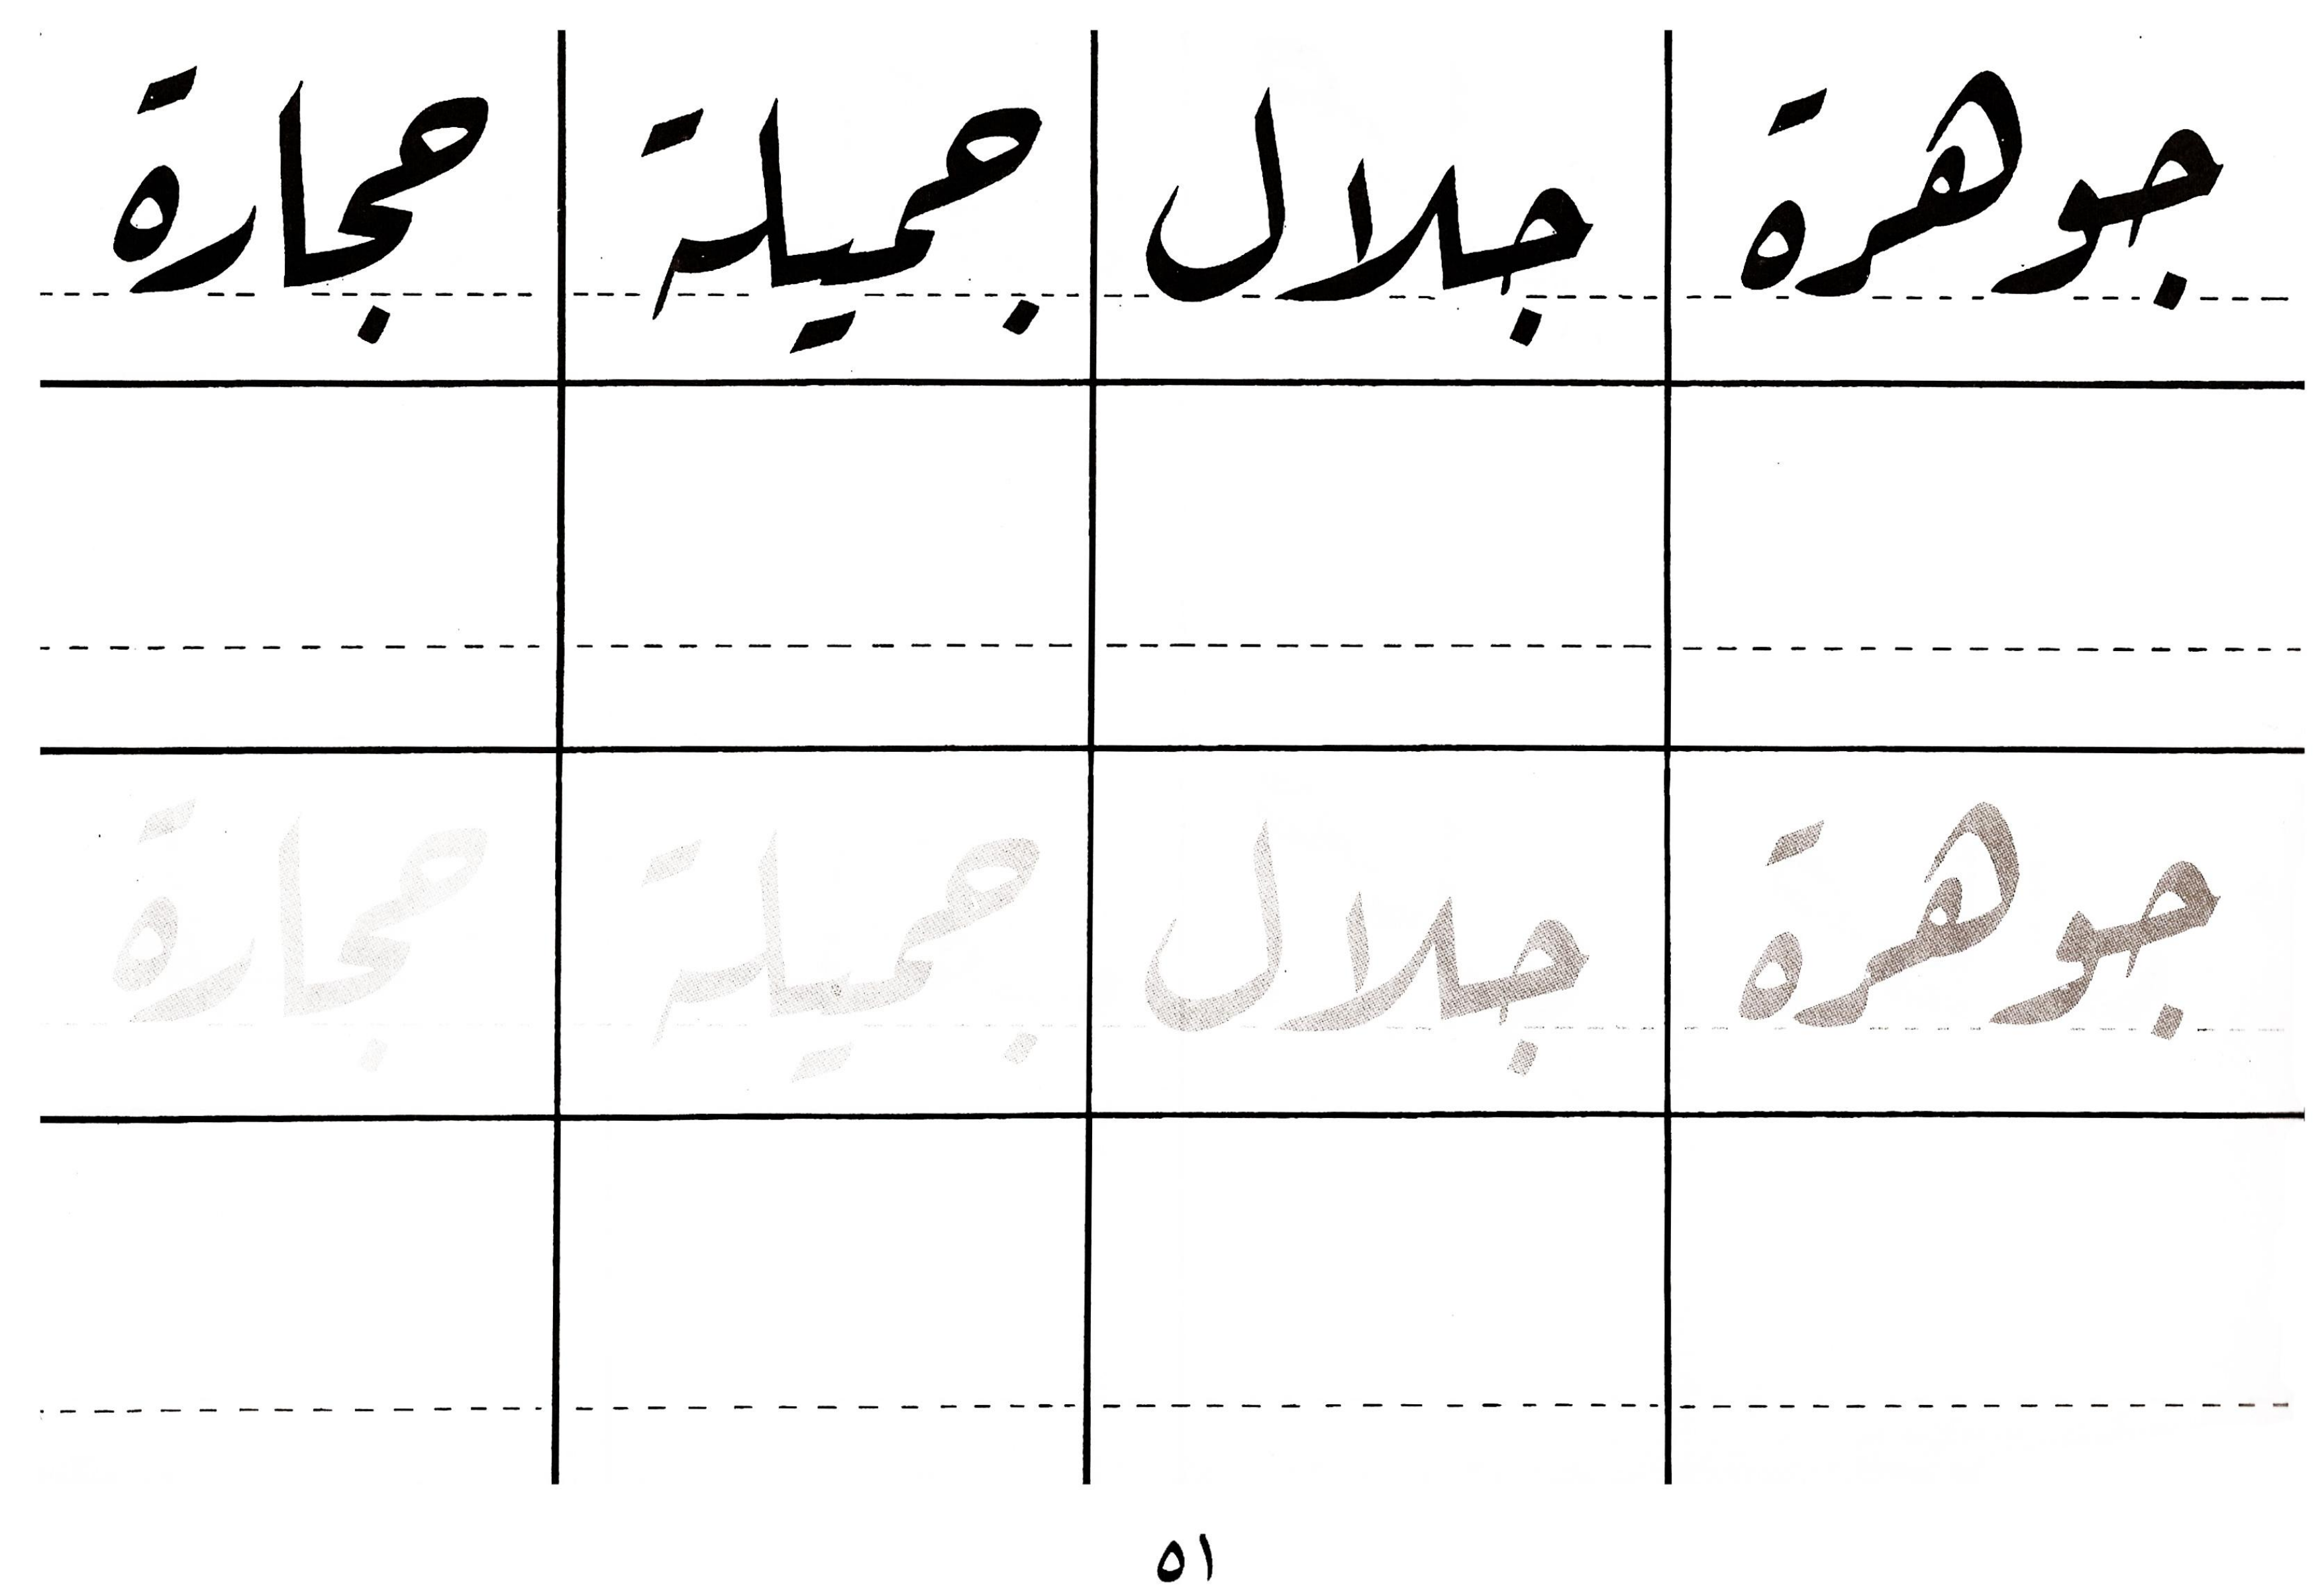 جوهرة جلال جميلة حجارة
جوهرة جلال جميلة حجارة
٥١